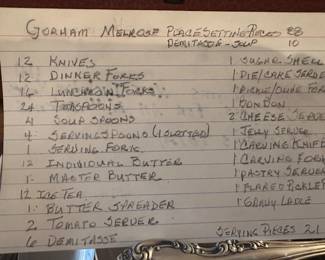 GORHAM MELROSE PLACE SETTING PIECES 88
DEMITASSE - SOUP 10
12 KNIVES
12 DINNER FORKS
16 LUNCHEON FORKS
24 TEASPOONS
4 SOUP SPOONS
4 SERVING SPOONS (1 SLOTTED)
1 SERVING FORK
12 INDIVIDUAL BUTTER
1 MASTER BUTTER
12 ICE TEA
1 BUTTER SPREADER
2 TOMATO SERVER
6 DEMITASSE
1 SUGAR SHELL
1 PIE/CAKE SERVER
1 PICKLE/OLIVE FORK
1 BON BON
2 CHEESE SERVER
1 JELLY SERVER
1 CARVING KNIFE
1 CARVING FORK
1 PASTRY SERVER
1 FLARED PICKLE
1 GRAVY LADLE
SERVING PIECES 21